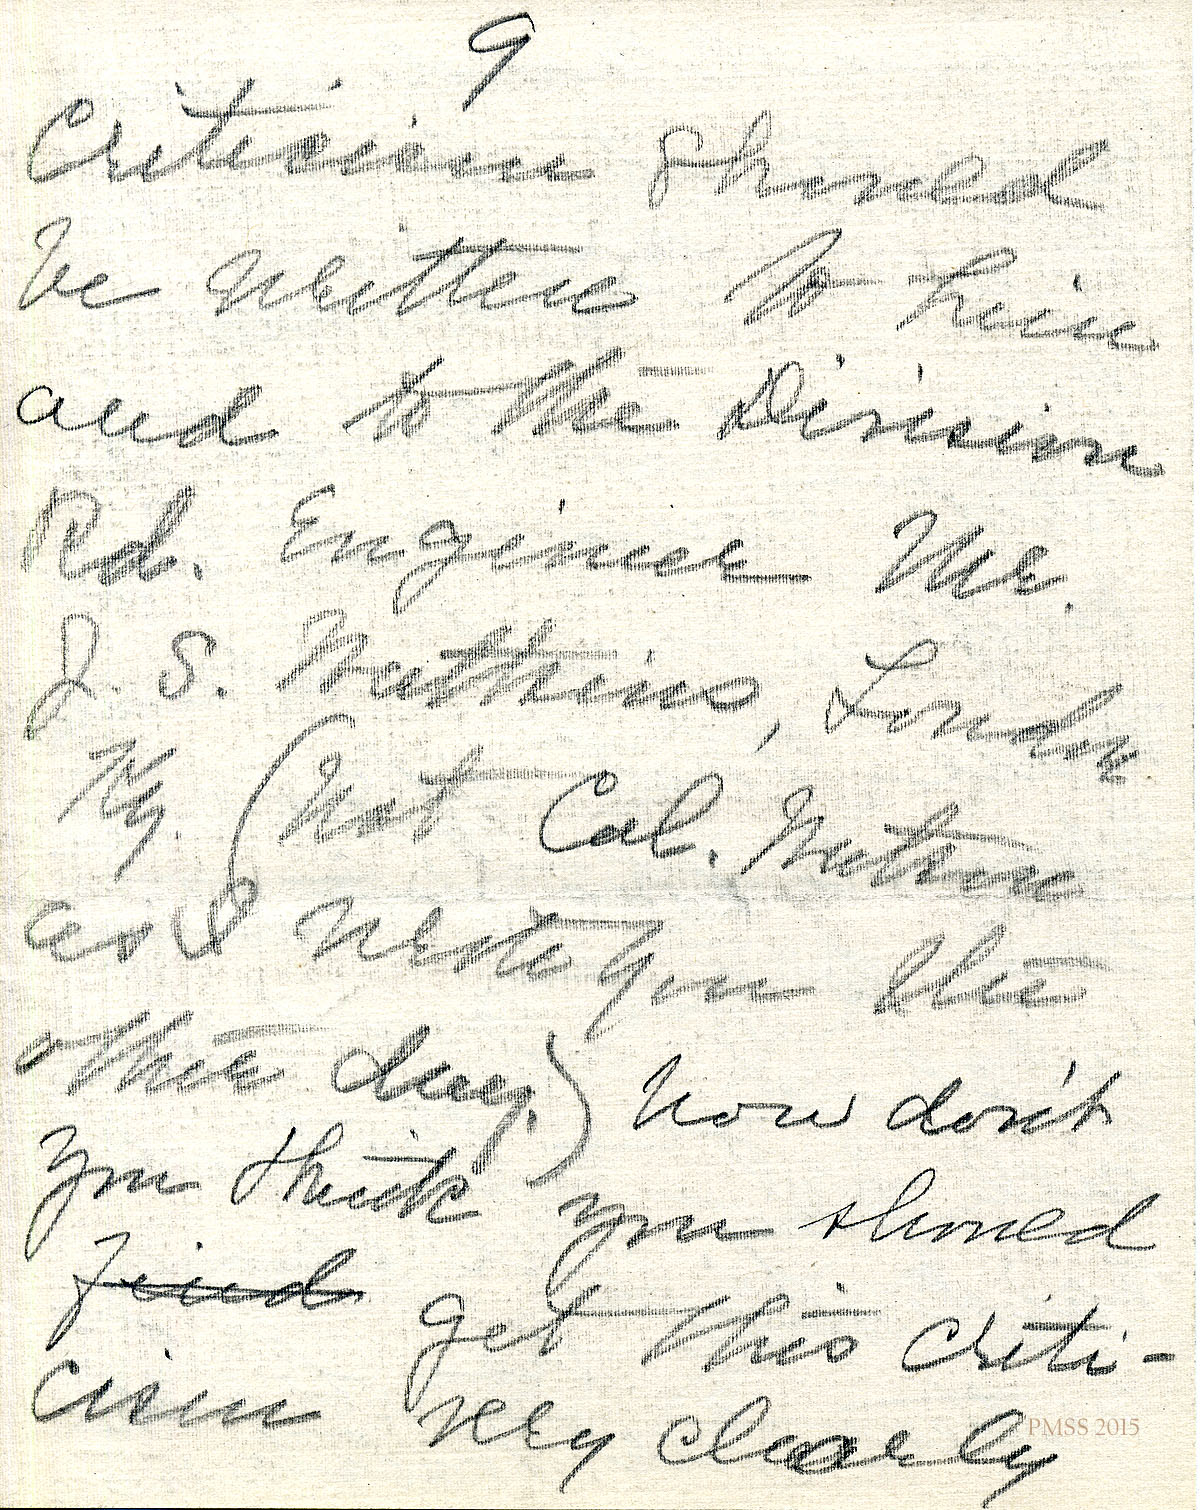 9
Criticism should
be written to him
and to the Division
Rd. Engineer Mr.
J. S. Watkins, London
Ky. (Not Cal. Watkins
as I wrote you the
other day.) Now don't
you think you should
find get this criti-
cism very clearly
PMSS 2015